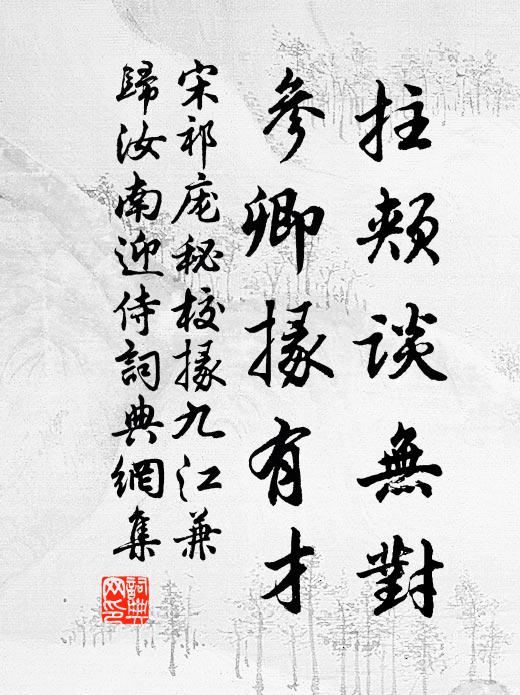 拄頰談無對
參卿掾有才
宋祁庞秘校掾九江兼
歸汝南迎侍詞典網集
詞典網印